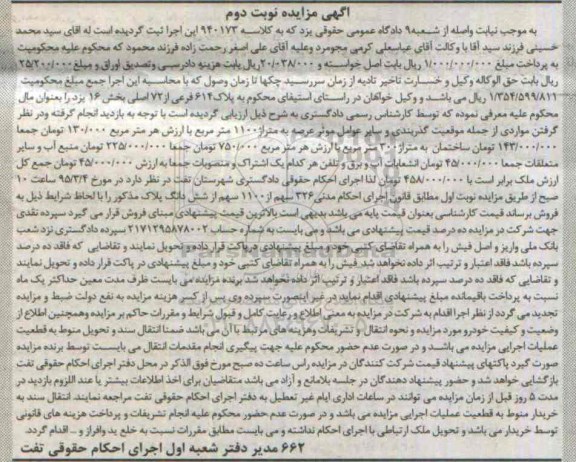 آگهی مزایده نوبت دوم
به موجب نیابت واصله از شعبه۹ دادگاه عمومی حقوقی یزد که به کلاسه ۹۴۰۱۷۳ این اجرا ثبت گردیده است له اقای سید محمد
حسینی فرزند سید آقا با وکالت آقای عباسعلی کرمی مجومرد وعلیه آقای علی اصغر رحمت زاده فرزند محمود که محکوم علیه محکومیت
به پرداخت مبلغ ۱/۰۰۰/۰۰۰/۰۰۰ ریال بابت اصل خواسته و ۲۰/۰۳۸/۰۰۰ ریال بابت هزینه دادرسی وتصدیق اوراق و مبلغ ۲۵/۲۰۰/۰۰۰
ریال بابت حق الوکاله وکیل و خسارت تاخیر تادیه از زمان سررسید چکها تا زمان وصول که با محاسبه این اجرا جمع مبلغ محکومیت
۱/۳۵۴/۵۹۹/۸۱۱ ریال می باشد و وکیل خواهان در راستای استیفای محکوم به پلاک۶۱۴ فرعی از۷۲ اصلی بخش ۱۶ یزد را بعنوان مال
محکوم علیه معرفی نموده که توسط کارشناس رسمی دادگستری به شرح ذیل ارزیابی گردیده است با توجه به بازدید انجام گرفته ودر نظر
گرفتن مواردی از جمله موقعیت گذربندی و سایر عوامل موثر عرصه به متراژ۱۱۰۰ متر مربع با ارزش هر متر مربع ۱۳۰/۰۰۰ تومان جمعا
۱۴۳/۰۰۰/۰۰۰ تومان ساختمان به متراژ۳۰۰ متر مربع با ارزش هر متر مربع ۷۵۰/۰۰۰ تومان جمعا ۲۲۵/۰۰۰/۰۰۰ تومان منبع آب و سایر
متعلقات جمعا ۴۵/۰۰۰/۰۰۰ تومان انشعابات آب و برق و تلفن هر کدام یک اشتراک و منصوبات جمعا به ارزش ۴۵/۰۰۰/۰۰۰ تومان جمع کل
ارزش ملک برابر است با ۴۵۸/۰۰۰/۰۰۰ تومان لذا اجرای احکام حقوقی دادگستری شهرستان تفت در نظر دارد در مورخ ۹۵/۳/۴ ساعت ۱۰
صبح از طریق مزایده نوبت اول مطابق قانون اجرای احکام مدنی۳۲۶ سهم از۱۱۰۰ سهم از شش دانگ پلاک مذکور را با لحاظ شرایط ذیل به
فروش برساند قیمت کارشناسی بعنوان قیمت پایه می باشد بدیهی است بالاترین قیمت پیشنهادی مبنای فروش قرار می گیرد سپرده نقدی
جهت شرکت در مزایده ده درصد قیمت پیشنهادی می باشد و می بایست به شماره حساب ۲۱۷۱۲۹۵۸۷۸۰۰۲ سپرده دادگستری نزد شعب
بانک ملی واریز و اصل فیش را به همراه تقاضای کتبی خود و مبلغ پیشنهادی در پاکت قرار داده و تحویل نمایند و تقاضایی که فاقد ده درصد
سپرده باشد فاقد اعتبار و ترتیب اثر داده نخواهد شد فیش را به همراه تقاضای کتبی خود و مبلغ پیشنهادی در پاکت قرار داده و تحویل نمایند
و تقاضایی که فاقد ده درصد سپرده باشد فاقد اعتبار و ترتیب اثر داده نخواهد شد برنده مزایده می بایست ظرف مدت معین حداکثر یک ماه
نسبت به پرداخت باقیمانده مبلغ پیشنهادی اقدام نماید در غیر اینصورت سپرده وی پس از کسر هزینه مزایده به نفع دولت ضبط و مزایده
تجدید می گردد از نظر اجرا اقدام به شرکت در مزایده به معنی اطلاع و رعایت کامل و قبول شرایط و مقررات حاکم بر مزایده وهمچنین اطلاع از
وضعیت و کیفیت خودرو مورد مزایده و نحوه انتقال و تشریفات وهزینه های مرتبط با آن می باشد ضمنا انتقال سند و تحویل منوط به قطعیت
عملیات اجرایی مزایده می باشد و در صورت عدم حضور محکوم علیه جهت پیگیری انجام مقدمات انتقال می بایست توسط برنده مزایده
صورت گیرد پاکتهای پیشنهاد قیمت شرکت کنندگان در مزایده راس ساعت ده صبح مورخ فوق الذکر در محل دفتر اجرای احکام حقوقی تفت
بازگشایی خواهد شد و حضور پیشنهاد دهندگان در جلسه بلامانع و آزاد می باشد متقاضیان برای اخذ اطلاعات بیشتر یا عند اللزوم بازدید در
مدت ۵ روز قبل از زمان مزایده می توانند در ساعات اداری ایام غیر تعطیل به دفتر اجرای احکام حقوقی تفت مراجعه نمایند. انتقال سند به
خریدار منوط به قطعیت عملیات اجرایی مزایده می باشد و در صورت عدم حضور محکوم علیه انجام تشریفات و پرداخت هزینه های قانونی
توسط خریدار می باشد و تحویل ملک ارتباطی با اجرای احکام نداشته و می بایست مطابق مقررات نسبت به خلع ید وافراز و ... اقدام گردد.
۶۶۲ مدیر دفتر شعبه اول اجرای احکام حقوقی تفت